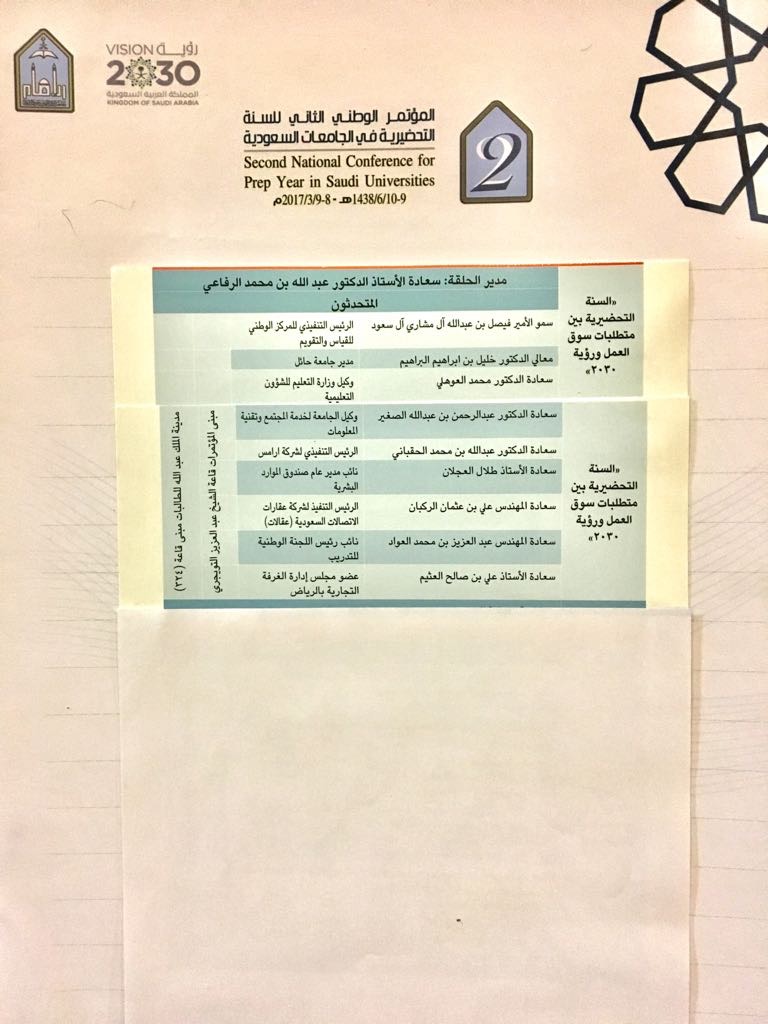 رؤيـــة VISION
2030
المملكة العربية السعودية
KINGDOM OF SAUDI ARABIA
المؤتمر الوطني الثاني للسنة
التحضيرية في الجامعات السعودية
Second National Conference for
Prep Year in Saudi Universities
9-1438/6/10هـ - 8-2017/3/9م
2
«السنة
التحضيرية بين
متطلبات سوق
العمل ورؤية
٢٠٣٠»
مدير الحلقة: سعادة الأستاذ الدكتور عبد الله بن محمد الرفاعي
المتحدثون
سمو الأمير فيصل بن عبدالله آل مشاري آل سعود
الرئيس التنفيذي للمركز الوطني
للقياس والتقويم
معالي الدكتور خليل بن ابراهيم البراهيم
مدير جامعة حائل
سعادة الدكتور محمد العوهلي
وكيل وزارة التعليم للشؤون
التعليمية
«السنة
التحضيرية بين
متطلبات سوق
العمل ورؤية
٢٠٣٠»
سعادة الدكتور عبدالرحمن بن عبدالله الصغير
وكيل الجامعة لخدمة المجتمع وتقنية
المعلومات
سعادة الدكتور عبدالله بن محمد الحقباني
الرئيس التنفيذي لشركة ارامس
سعادة الأستاذ طلال العجلان
نائب مدير عام صندوق الموارد
البشرية
سعادة المهندس علي بن عثمان الركبان
الرئيس التنفيذ لشركة عقارات
الاتصالات السعودية (عقالات)
سعادة المهندس عبد العزيز بن محمد العواد
نائب رئيس اللجنة الوطنية
للتدريب
سعادة الأستاذ علي بن صالح العثيم
عضو مجلس إدارة الغرفة
التجارية بالرياض
مبنى المؤتمرات قاعة الشيخ عبد العزيز التويجري
مدينة الملك عبد الله للطالبات مبنى قاعة (٣٢٤)